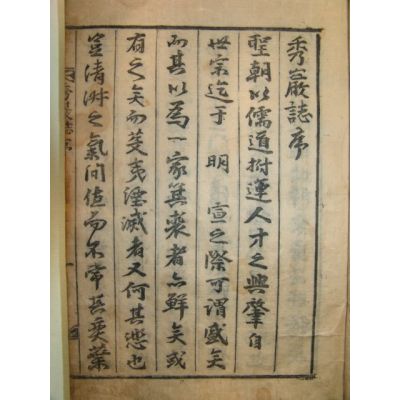 秀巖誌序
聖朝以儒道撫運人才之興肇自
世宗迄于 明 宣之際可謂盛矣
而其以爲一家箕裘者亦鮮矣或
有之矣而芟夷湮滅者又何其悲也
豈淸淑之氣間値而不常其奕葉